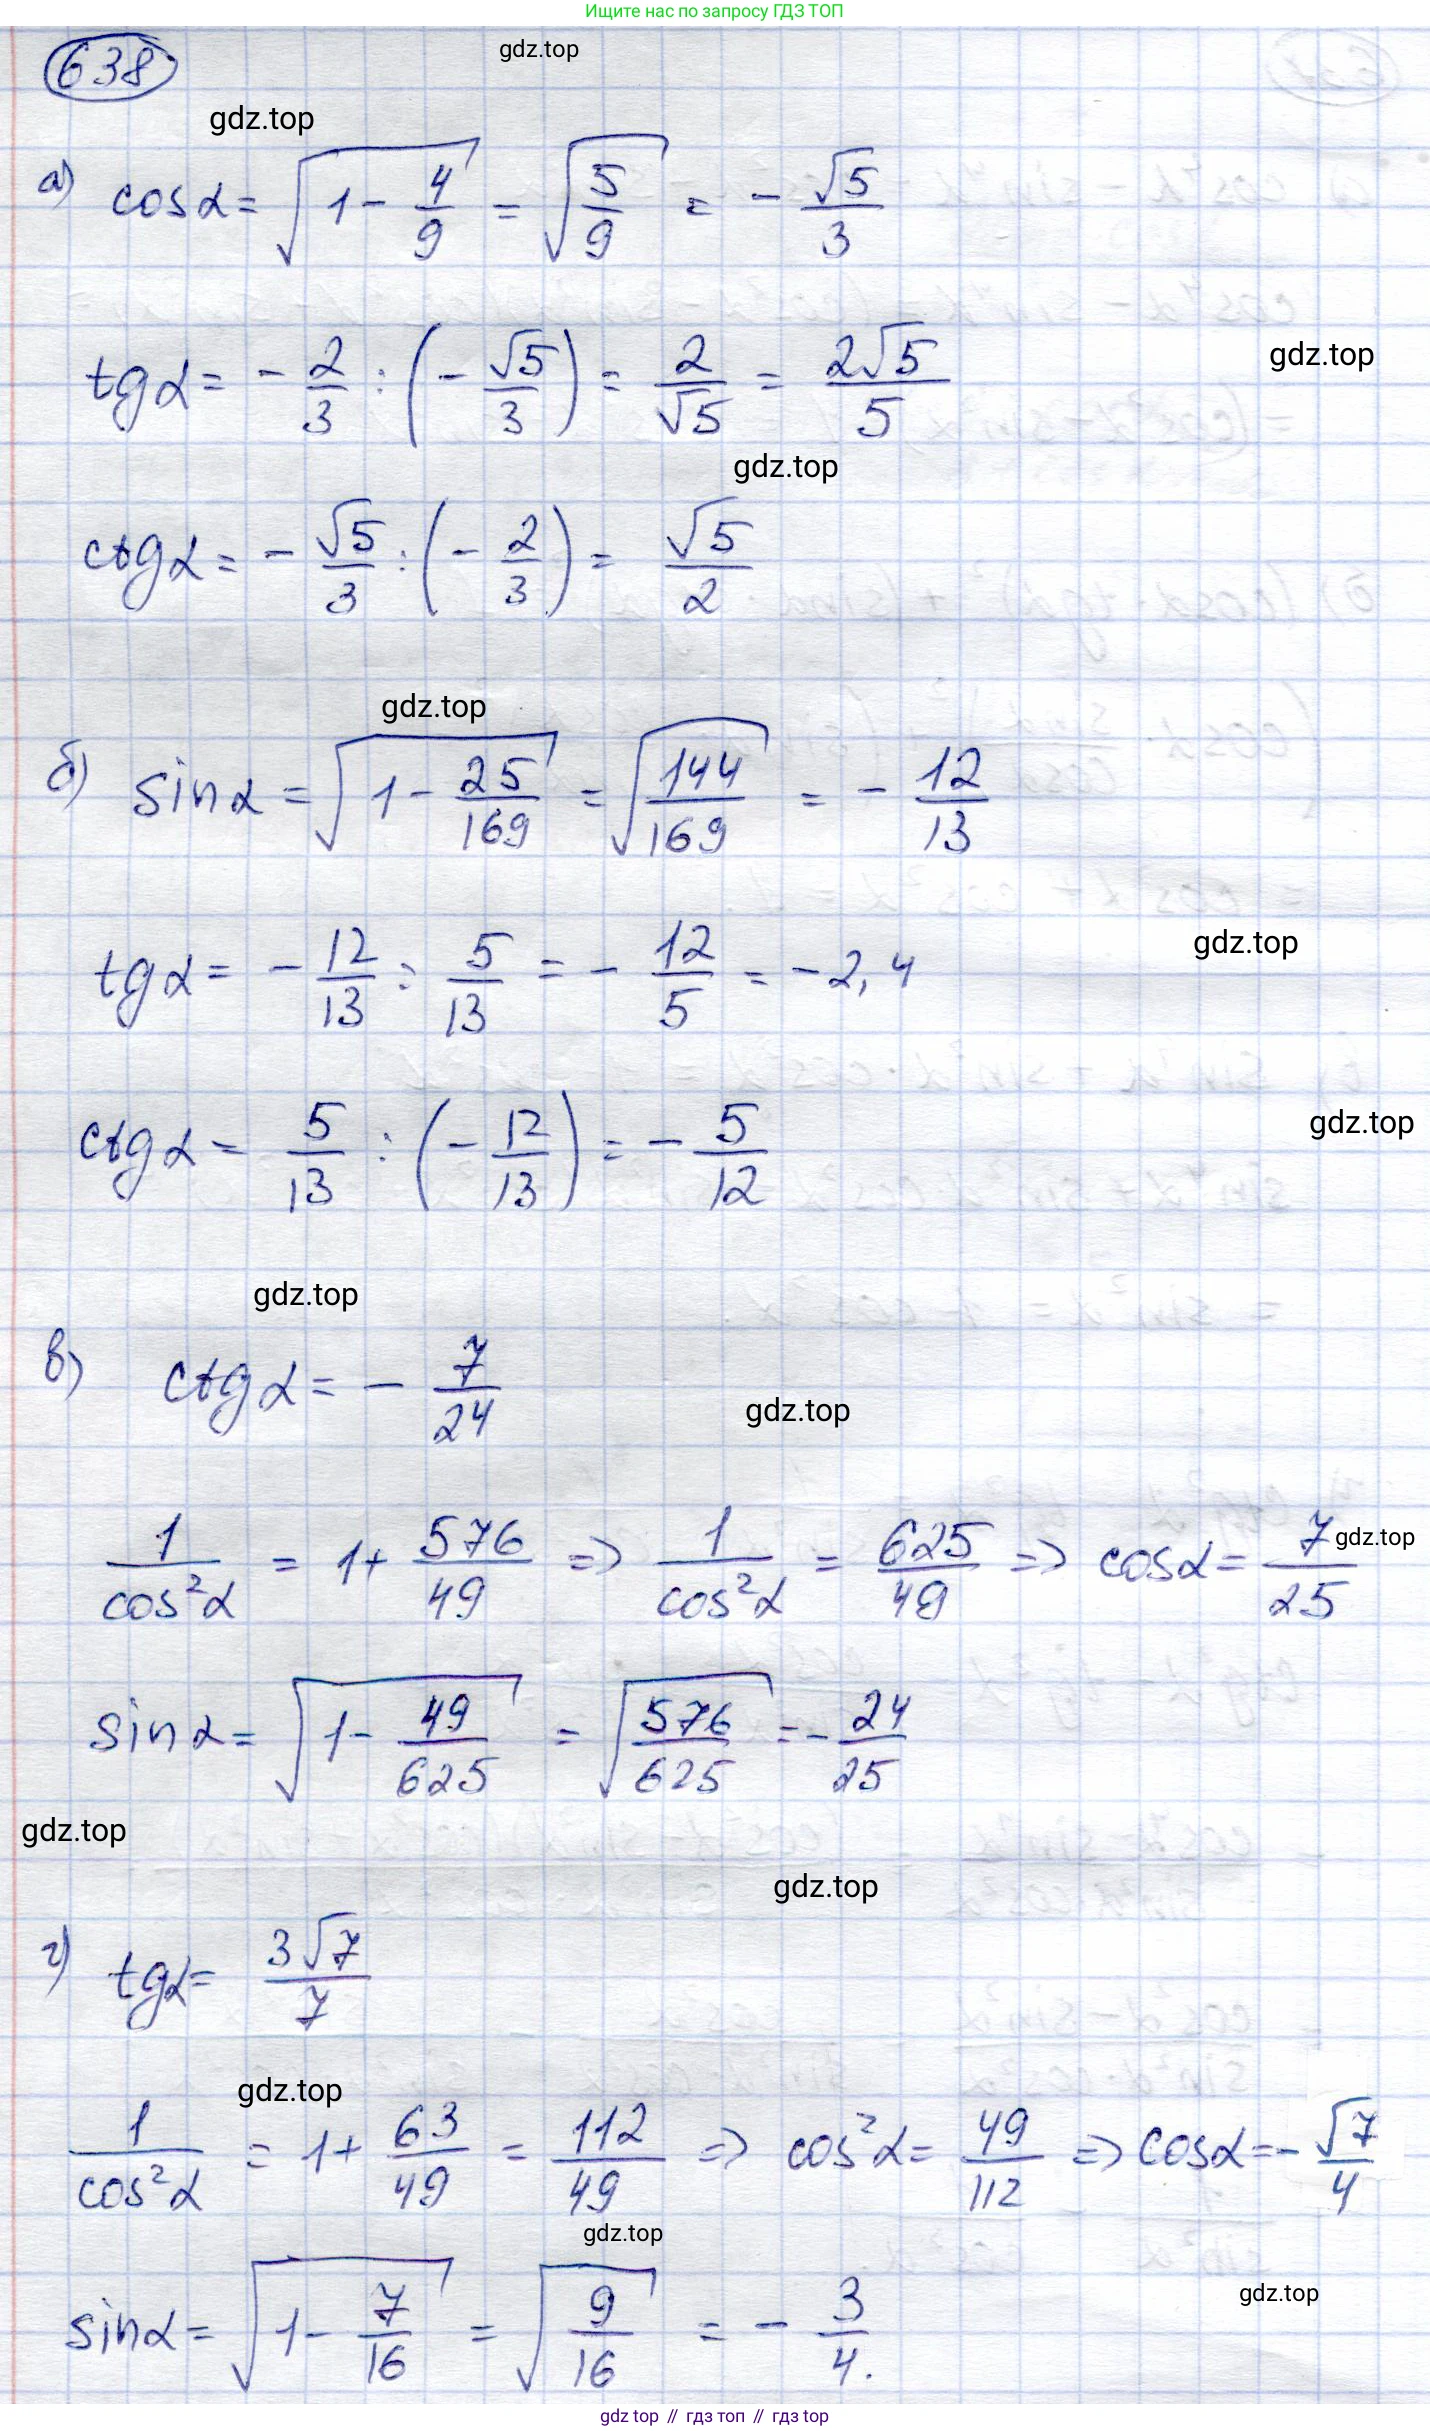 Ищите нас по запросу ГДЗ ТОП
638
gdz.top
gdz.top
а) cosα = √(1 - 4/9) = √(5/9) = - √5/3
tgα = - 2/3 : (- √5/3) = 2/√5 = 2√5/5
gdz.top
gdz.top
ctgα = - √5/3 : (- 2/3) = √5/2
gdz.top
б) sinα = √(1 - 25/169) = √(144/169) = - 12/13
tgα = - 12/13 : 5/13 = - 12/5 = -2,4
gdz.top
ctgα = 5/13 : (- 12/13) = - 5/12
gdz.top
gdz.top
в) ctgα = - 7/24
gdz.top
1/cos²α = 1+ 576/49 => 1/cos²α = 625/49 => cosα = 7/25
gdz.top
sinα = √(1 - 49/625) = √(576/625) = - 24/25
gdz.top
gdz.top
г) tgα = 3√7/7
gdz.top
1/cos²α = 1+ 63/49 = 112/49 => cos²α = 49/112 => cosα = - √7/4
gdz.top
gdz.top
sinα = √(1 - 7/16) = √(9/16) = - 3/4.
gdz top // гдз топ // гдз top